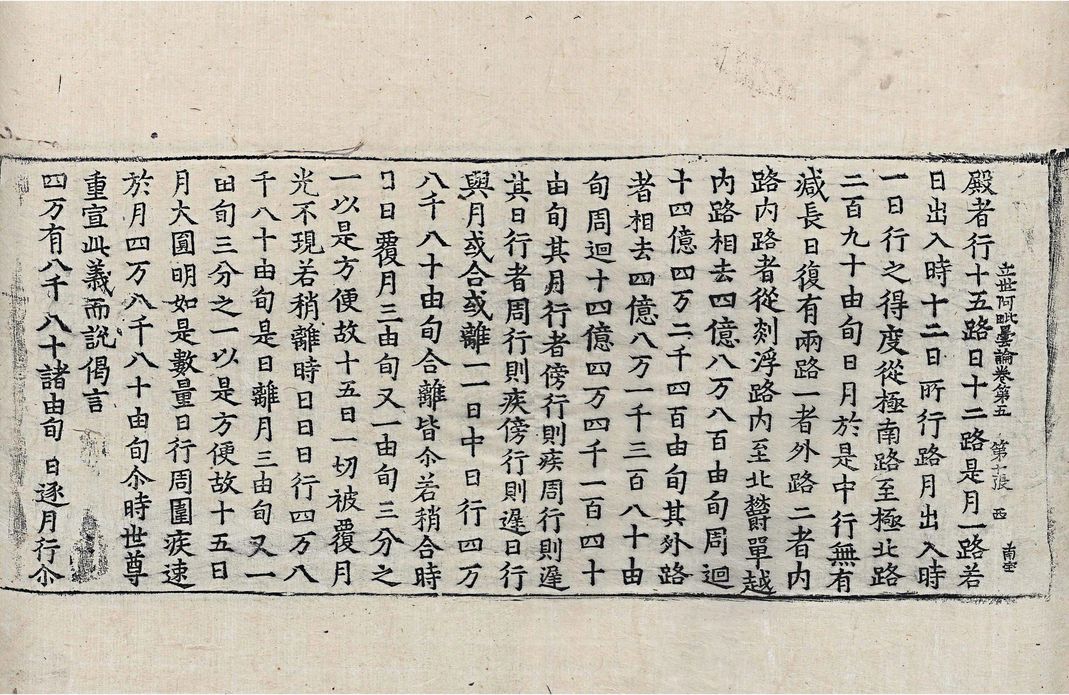 立世阿毗曇論卷第五 第十張 西
殿者行十五路日十二路是月一路若
日出入時十二日所行路月出入時
一日行之得度從極南路至極北路
二百九十由旬日月於是中行無有
減長日復有兩路一者外路二者内
路内路者從剡浮路内至北欝單越
内路相去四億八万八百由旬周迴
十四億四万二千四百由旬其外路
者相去四億八万一千三百八十由
旬周迴十四億四万四千一百四十
由旬其月行者傍行則疾周行則遲
其日行者周行則疾傍行則遲日行
與月或合或離一一日中日行四万
八千八十由旬合離皆尒若稍合時
日日覆月三由旬又一由旬三分之
一以是方便故十五日一切被覆月
光不現若稍離時日日日行四万八
千八十由旬是日離月三由旬又一
由旬三分之一以是方便故十五日
月大圓明如是數量日行周圍疾速
於月四万八千八十由旬尒時世尊
重宣此義而說偈言
四万有八千 八十諸由旬 日逐月行尒